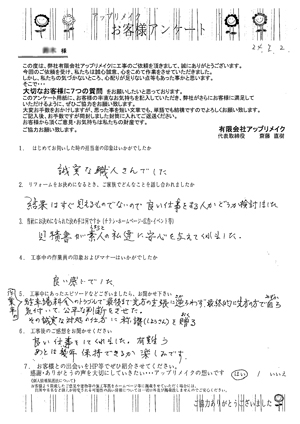 アップリメイク
お客様アンケート
様
24. 2. 2.
この度は、弊社有限会社アップリメイクに工事のご依頼を頂きまして、誠にありがとうございます。
今回のご依頼を受け、私たちは誠心誠意、心をこめて作業をさせていただきました。
しかし、私たちの気づかないところ、心配りが足りない点等もあった事かと思います。
そこで…
大切なお客様に7つの質問 をお願いしたいと思っております。
このアンケート用紙に、お客様の率直なお気持ちを記入していただき、弊社がさらにお客様に満足して
いただけるように、ぜひご協力をお願い致します。
大変お手数をおかけしますが、思った事を短い文章でも、単語でも結構ですのでよろしくお願い致します。
ご記入後、お手数ですが同封しました封筒に入れてご返送ください。
お客様から頂くご意見・お気持ちは私たちの財産です。
ご協力お願い致します。
有限会社アップリメイク
代表取締役 齋藤 直樹
1. はじめてお伺いした時の担当者の印象はいかがでしたか
誠実な職人さんでした
2. リフォームをお決めになるとき、ご家族でどんなことを話し合われましたか
結果はすぐ見えるものでないので良い仕事をする人かどうか検討しました
3. 当社にお決めになられた決め手は何ですか(チラシ・ホームページ・広告・イベント等)
見積書が素人の私達に安心を与えてくれました
4. 工事中の作業員の印象およびマナーはいかがでしたか
良い感じでした
5. 工事中にあったエピソードなどございましたら、お聞かせ下さい
その誠実な対処の仕方に 称讃(しょうさん)を贈る
6. 工事後のご感想をお聞かせください
良い仕事をしてくれました。有難う
あとは幾年保持できるか楽しみ
7. お客様との出会いをHP等でぜひ紹介させてください。
感謝・ありがとうの声を大切にしていきたい・・・アップリメイクの想いです はい / いいえ
ご協力ありがとうございました